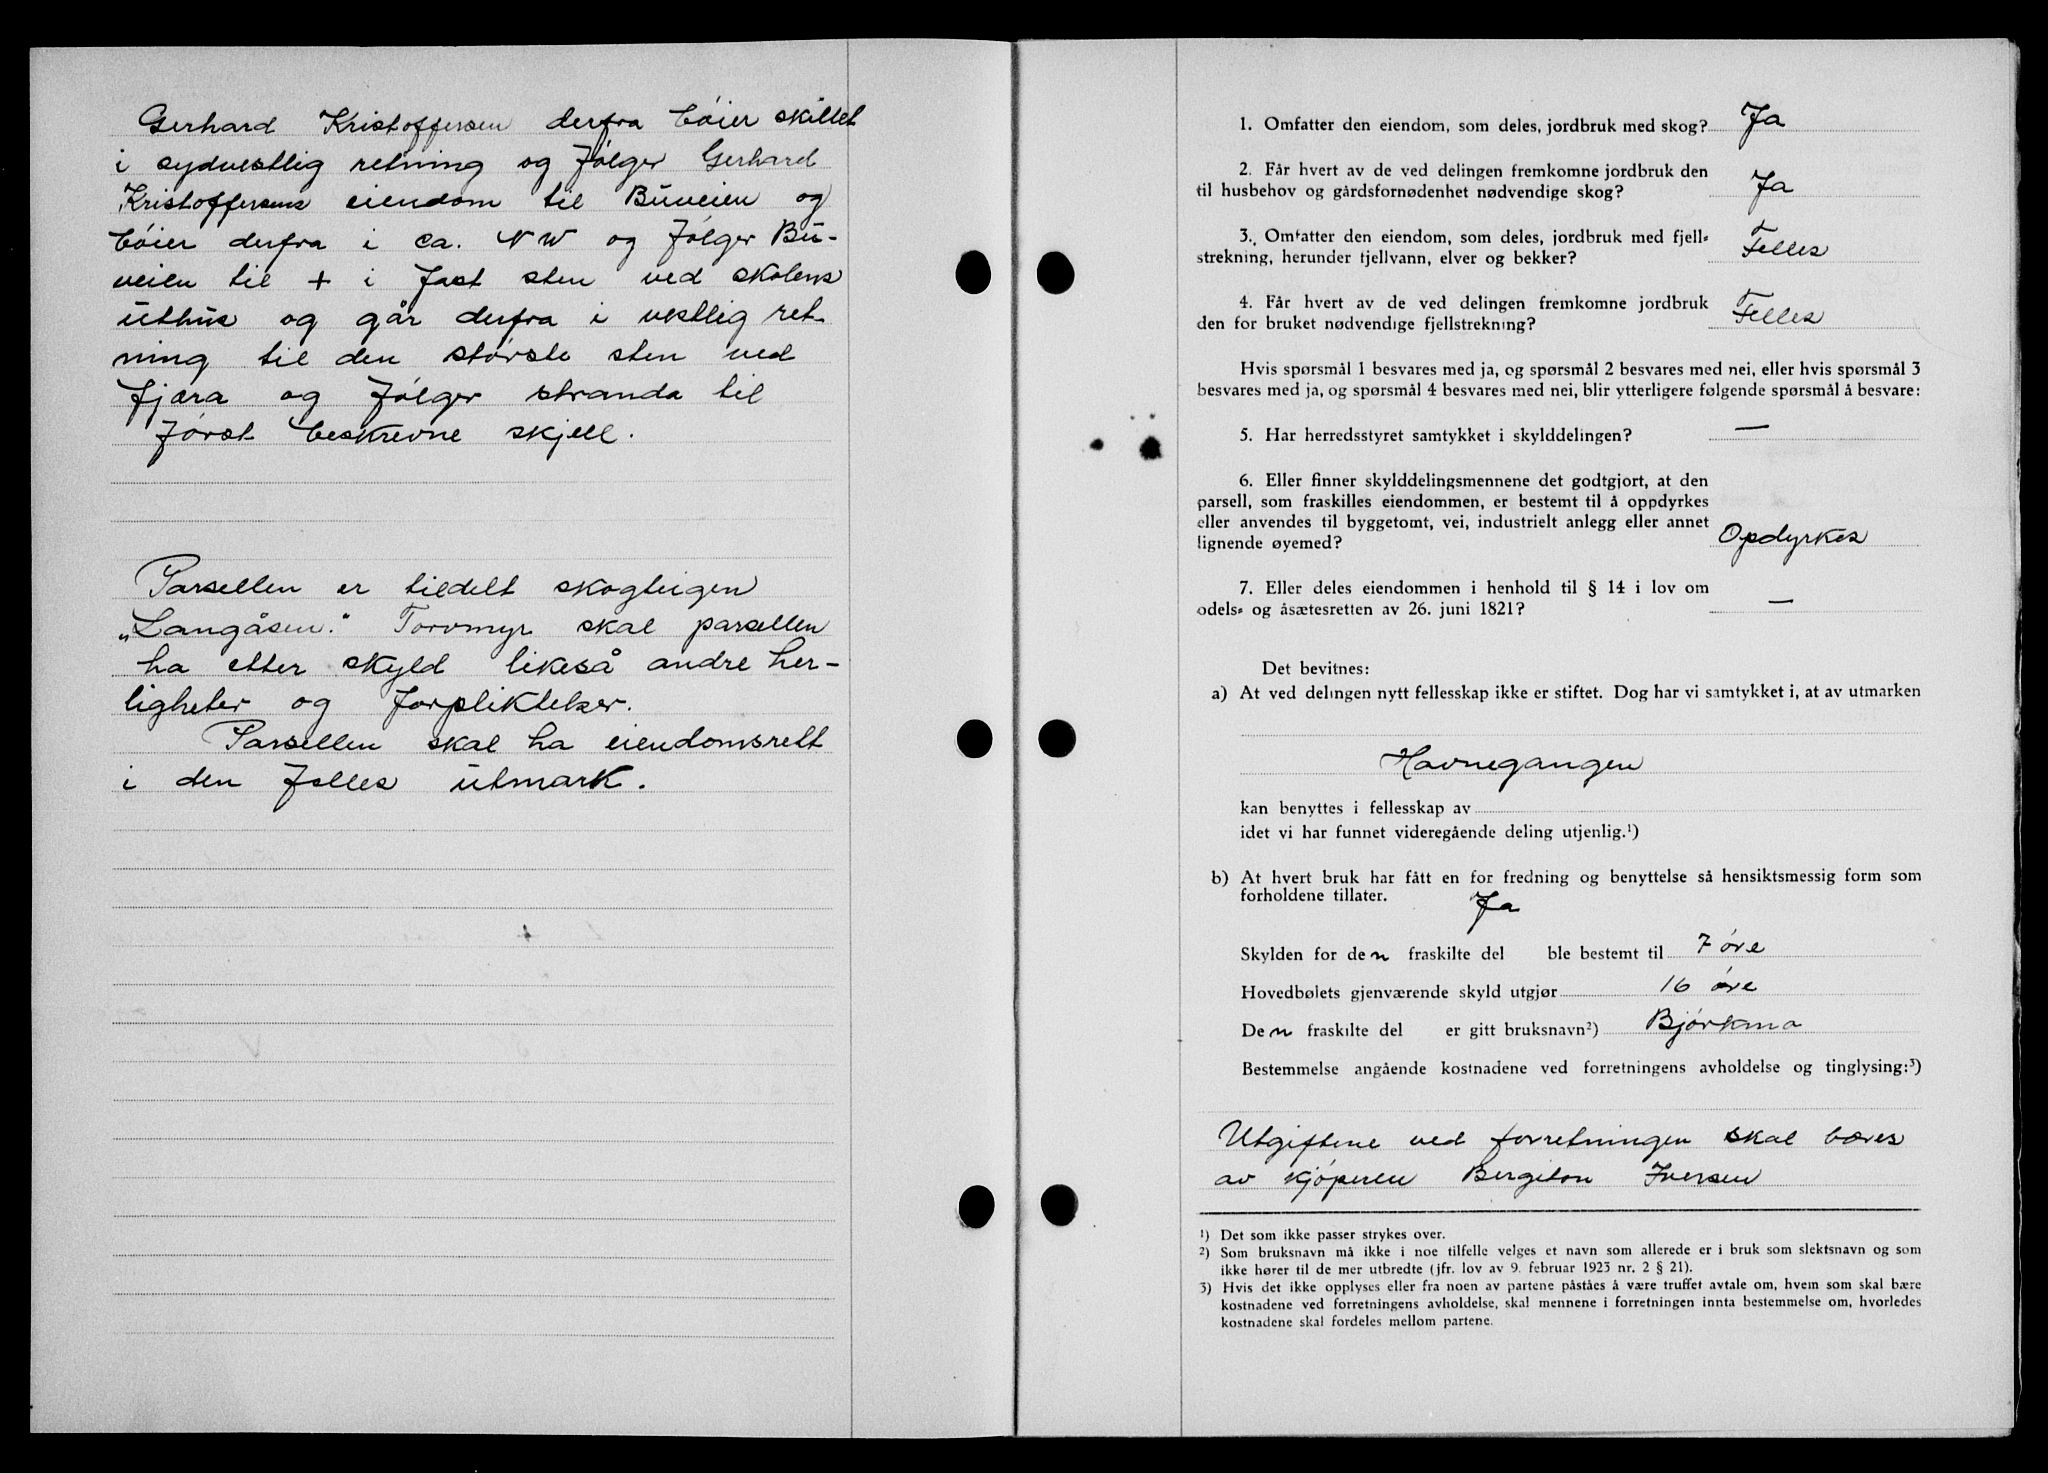 Gerhard Kristoffersen derfra bøier skillet
i sydvestlig retning og følger Gerhard
Kristoffersens eiendom til Buveien og
bøier derfra i ca. NW og følger Bu-
veien til + i fast sten ved skolens
uthus og går derfra i vestlig ret-
ning til den største sten ved
fjæra og følger stranda til
først beskrevne skjell.
Parsellen er tildelt skogteigen
„Langåsen." Torvmyr skal parsellen
ha etter skyld likeså andre her-
ligheter og forpliktelser.
Parsellen skal ha eiendomsrett
i den felles utmark.
1. Omfatter den eiendom, som deles, jordbruk med skog? Ja
2. Får hvert av de ved delingen fremkomne jordbruk den
til husbehov og gårdsfornødenhet nødvendige skog? Ja
3. Omfatter den eiendom, som deles, jordbruk med fjell-
strekning, herunder fjellvann, elver og bekker? Felles
4. Får hvert av de ved delingen fremkomne jordbruk
den for bruket nødvendige fjellstrekning? Felles
Hvis spørsmål 1 besvares med ja, og spørsmål 2 besvares med nei, eller hvis spørsmål 3
besvares med ja, og spørsmål 4 besvares med nei, blir ytterligere følgende spørsmål å besvare:
5. Har herredsstyret samtykket i skylddelingen? —
6. Eller finner skylddelingsmennene det godtgjort, at den
parsell, som fraskilles eiendommen, er bestemt til å oppdyrkes
eller anvendes til byggetomt, vei, industrielt anlegg eller annet
lignende øyemed? Opdyrkes
7. Eller deles eiendommen i henhold til § 14 i lov om
odels- og åsætesretten av 26. juni 1821? —
Det bevitnes:
a) At ved delingen nytt fellesskap ikke er stiftet. Dog har vi samtykket i, at av utmarken
Havnegangen
kan benyttes i fellesskap av
idet vi har funnet videregående deling utjenlig.¹)
b) At hvert bruk har fått en for fredning og benyttelse så hensiktsmessig form som
forholdene tillater. Ja
Skylden for den fraskilte del ble bestemt til 7 øre
Hovedbølets gjenværende skyld utgjør 16 øre
Den fraskilte del er gitt bruksnavn²) Bjørkmo
Bestemmelse angående kostnadene ved forretningens avholdelse og tinglysing:³)
Utgiftene ved forretningen skal bæres
av kjøperen Bergiton Iversen
¹) Det som ikke passer strykes over.
²) Som bruksnavn må ikke i noe tilfelle velges et navn som allerede er i bruk som slektsnavn og som
ikke hører til de mer utbredte (jfr. lov av 9. februar 1923 nr. 2 § 21).
³) Hvis det ikke opplyses eller fra noen av partene påståes å være truffet avtale om, hvem som skal bære
kostnadene ved forretningens avholdelse, skal mennene i forretningen innta bestemmelse om, hvorledes
kostnadene skal fordeles mellom partene.